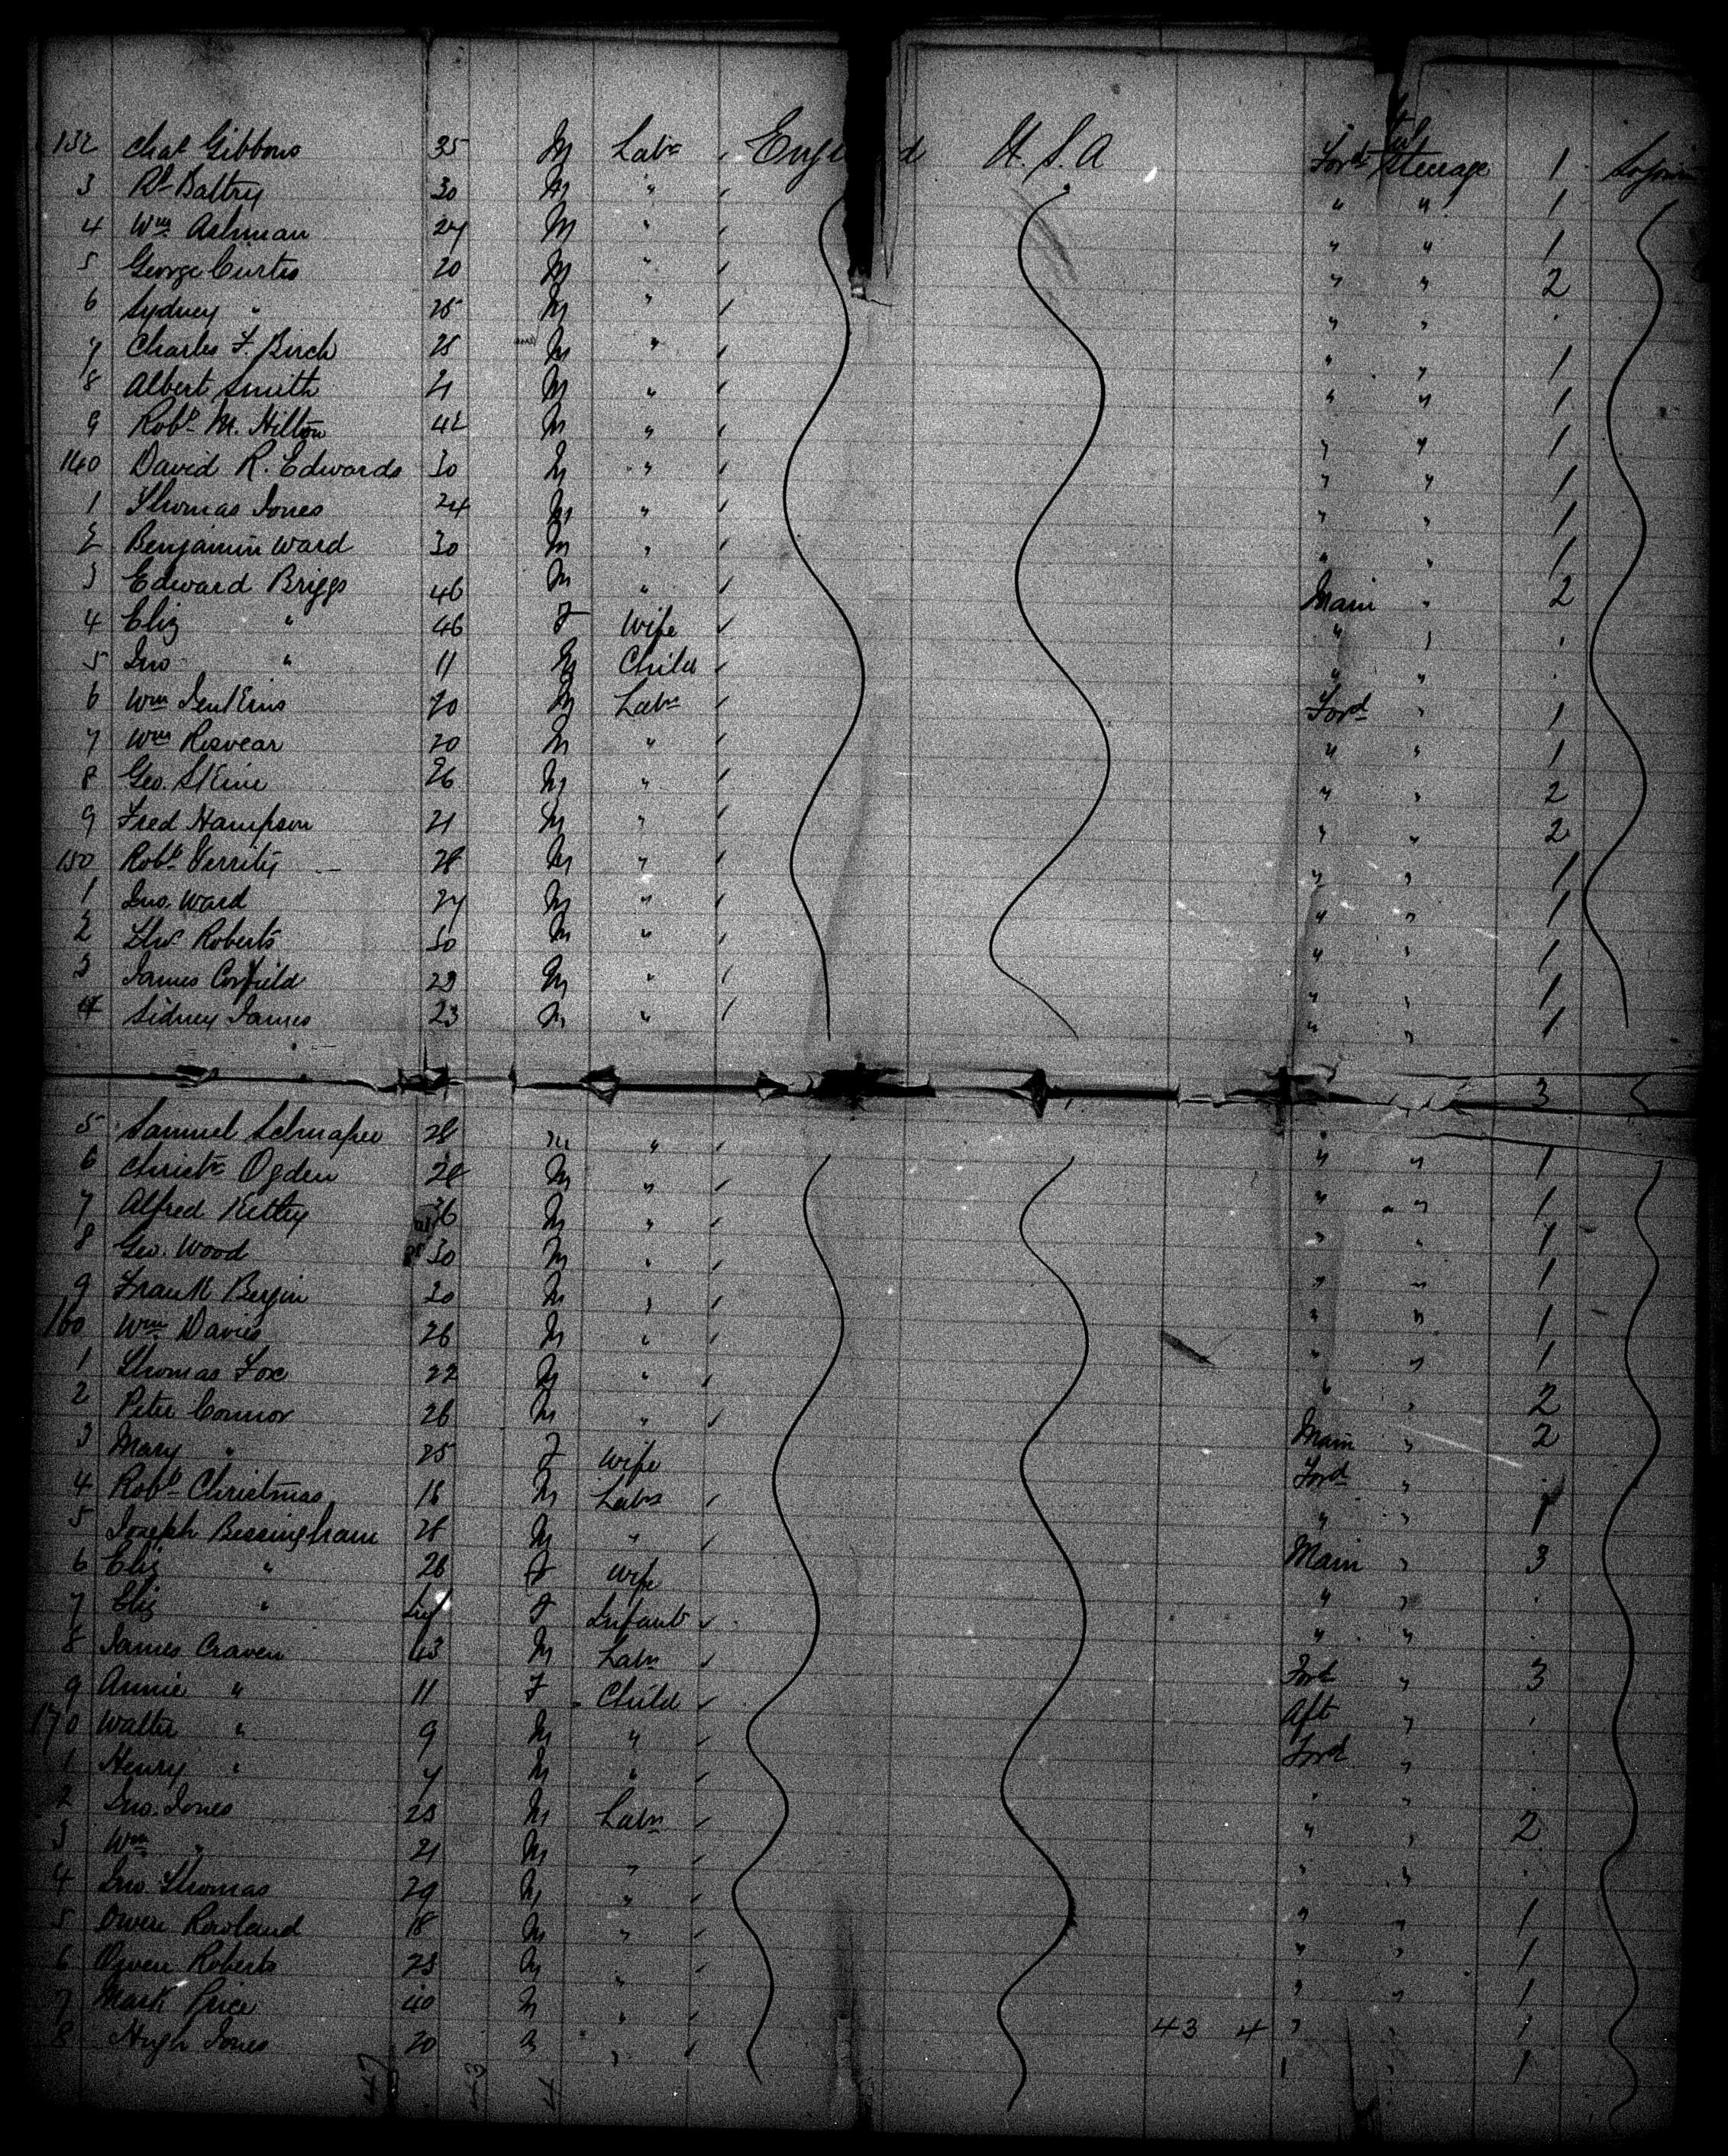 132 Chas Gibbons 35 M Labr England U.S.A Ford Steerage 1
3 Rd Baltry 30 M " " " 1
4 Wm Ashman 27 M " " " 1
5 George Curtis 20 M " " " 2
6 Sydney " 25 M " " "
7 Charles F. Birch 25 M " " " 1
8 Albert Smith 21 M " " " 1
9 Robt M. Hilton 42 M " " " 1
140 David R. Edwards 30 M " " " 1
1 Thomas Jones 24 M " " " 1
2 Benjamin Ward 30 M " " " 1
3 Edward Briggs 46 M " Main " 2
4 Eliz " 46 F Wife " "
5 Jno " 11 M Child " "
6 Wm Jenkins 20 M Labr Ford " 1
7 Wm Rosvear 20 M " " " 1
8 Geo. Skine 26 M " " " 2
9 Fred Hampson 21 M " " " 2
150 Robt Verrity 28 M " " " 1
1 Jno. Ward 27 M " " " 1
2 Thos Roberts 30 M " " " 1
3 James Corfield 29 M " " " 1
4 Sidney James 23 M " " " 1
5 Samuel 28 M " " " 3
6 Christr Ogden M " " " 1
7 Alfred 36 M " " " 1
8 Geo. Wood 30 M " " " 1
9 Frank Bergin 20 M " " " 1
160 Wm Davies 26 M " " " 1
1 Thomas Fox 22 M " " " 1
2 Peter Connor 26 M " " " 2
3 Mary " 25 F Wife Main " 2
4 Robt Christmas 18 M Labr Ford "
5 Joseph Bessingham 28 M " " " 1
6 Eliz " 26 F Wife Main " 3
7 Eliz " F Infant " "
8 James Craven 43 M Labr " "
9 Annie " 11 F Child Ford " 3
170 Walter " 9 M " Aft "
1 Henry " 7 M " Ford "
2 Jno. Jones 23 M Labr " "
3 Wm " 21 M " " " 2
4 Jno. Thomas 29 M " " "
5 Owen Rowland 18 M " " " 1
6 Owen Roberts 23 M " " " 1
7 Mark Price 40 M " " " 1
8 Hugh Jones 20 " 43 4 " " 1
1